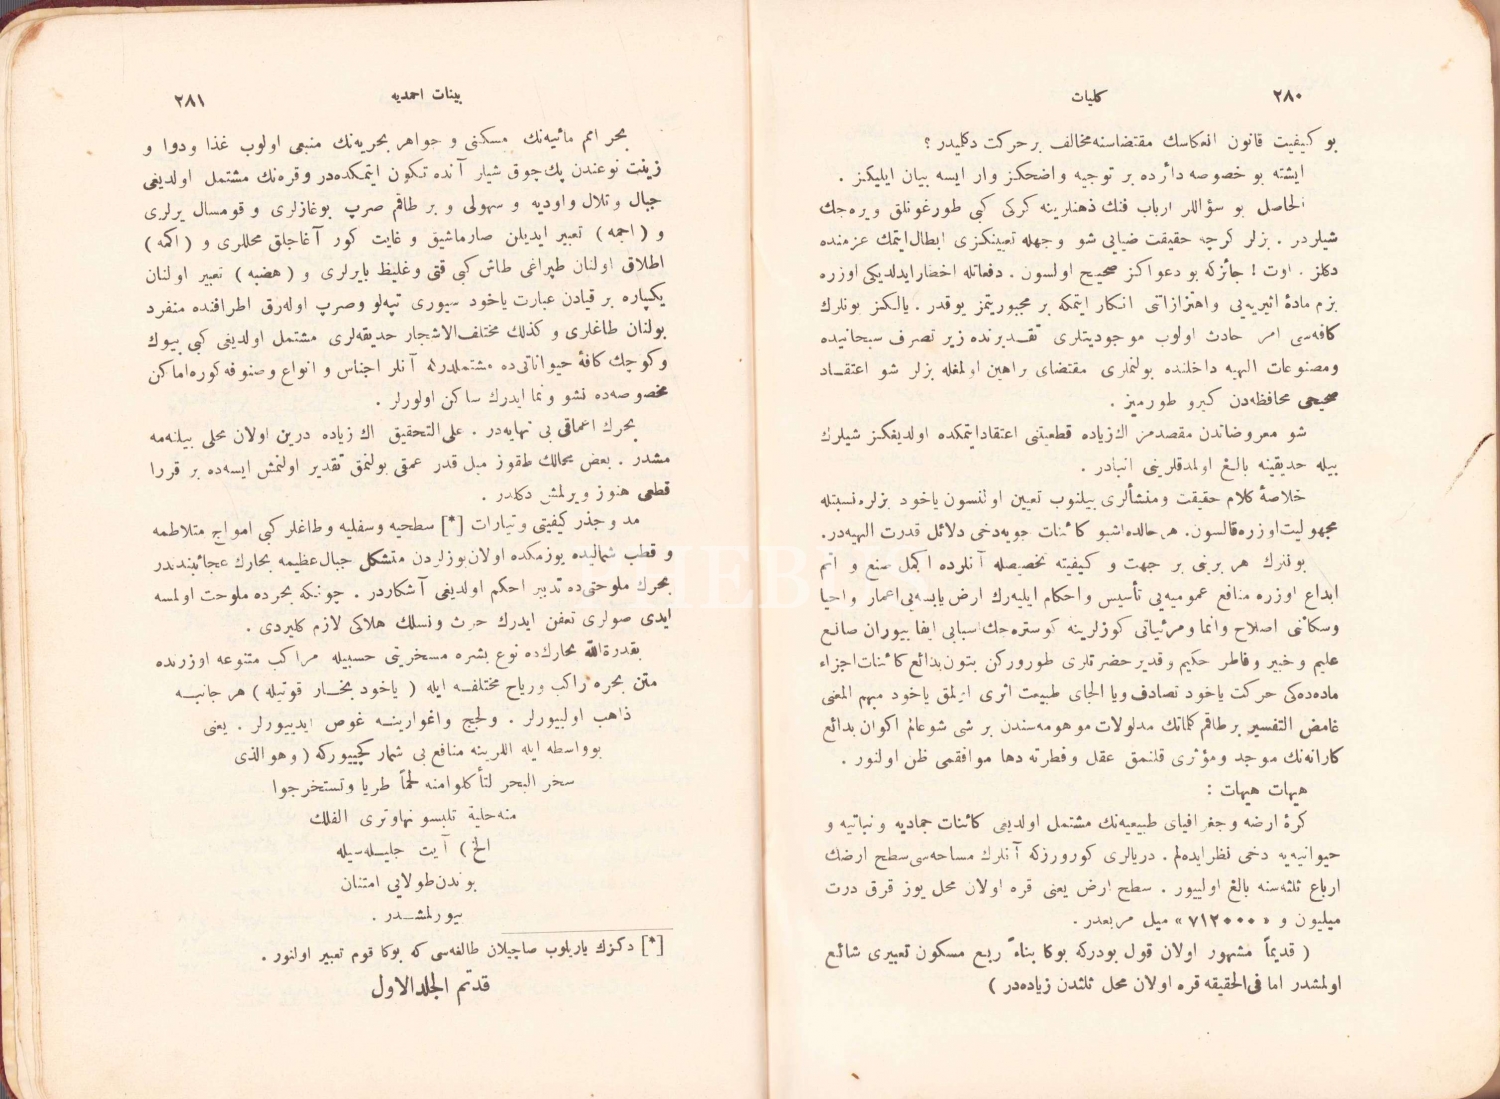 ٢٨٠
كليات
بو كيفيت قانون انعكاسك مقتضاسنه مخالف بر حركت دكلميدر ؟
ايشته بو خصوصه دائرده بر توجيه واضحكز وار ايسه بيان ايليكز .
الحاصل بو سؤاللر ارباب فنك ذهنلرينه كركى كبى طورغونلق ويره جك
شيلردر . بزلر كرچه حقيقت ضيايى شو وجهله تعيينكزى ابطال ايتمك عزمنده
دكلز . اوت ! جائزكه بو دعواكز صحيح اولسون . دفعاتله اخطار ايدلديكى اوزره
بزم مادۀ اثيريه يى واهتزازاتى انكار ايتمكه بر مجبوريتمز يوقدر . يالكز بونلرك
كافه سى امر حادث اولوب موجوديتلرى تقديرنده زير تصرف سبحانيده
ومصنوعات الهيه داخلنده بولنملرى مقتضاى براهين اولمغله بزلر شو اعتقاد
صحيحى محافظه دن كيرو طورميز .
شو معروضاتدن مقصدمز اك زياده قطعيتنى اعتقاد ايتمكده اولديغكز شيلرك
بيله حد يقينه بالغ اولمدقلرينى انبادر .
خلاصۀ كلام حقيقت ومنشألرى بيلنوب تعيين اولنسون ياخود بزلره نسبتله
مجهوليت اوزره قالسون. هر حالده اشبو كائنات جويه دخى دلائل قدرت الهيه در.
بونلرك هر برينى بر جهت و كيفيته تخصيصله آنلرده اكمل صنع و اتم
ابداع اوزره منافع عموميه يى تأسيس واحكام ايليه رك ارض يابسه يى اعمار واحيا
وسكاننى اصلاح وانما ومرئياتى كوزلرينه كوستره جك اسبابى ايفا بيوران صانع
عليم وخبير وفاطر حكيم وقدير حضرتلرى طوروركن بتون بدائع كائنات اجزاء
ماده ده كى حركت ياخود تصادف ويا الجاى طبيعت اثرى ايلمق ياخود مبهم المعنى
غامض التفسير بر طاقم كلماتك مدلولات موهومه سندن بر شى شو عالم اكوان بدائع
كارانه نك موجد ومؤثرى قلنمق عقل وفطرته دها موافقمى ظن اولنور .
هيهات هيهات :
كرۀ ارضه وجغرافياى طبيعيه نك مشتمل اولديغى كائنات جماديه ونباتيه و
حيوانيه يه دخى نظر ايده لم . دريالرى كورورزكه آنلرك مساحه سى سطح ارضك
ارباع ثلثه سنه بالغ اولييور . سطح ارض يعنى قره اولان محل يوز قرق درت
ميليون و «٧١٢٠٠٠» ميل مربعدر .
( قديماً مشهور اولان قول بودركه بوكا بناءً ربع مسكون تعبيرى شائع
اولمشدر اما فى الحقيقه قره اولان محل ثلثدن زياده در )
بينات احمديه
٢٨١
بحر امم مائيه نك مسكنى و جواهر بحريه نك منبعى اولوب غذا ودوا و
زينت نوعندن پك چوق شيلر آنده تكون ايتمكده در وقره نك مشتمل اولديغى
جبال وتلال واوديه و سهولى و بر طاقم صرپ بوغازلرى و قومسال يرلرى
و ( اجمه ) تعبير ايديلن صارماشيق و غايت كور آغاجلق محللرى و ( اكمه )
اطلاق اولنان طپراغى طاش كبى قتى وغليظ بايرلرى و ( هضبه ) تعبير اولنان
يكپاره بر قيادن عبارت ياخود سيورى تپه لو وصرپ اوله رق اطرافنده منفرد
بولنان طاغلرى و كذلك مختلف الاشجار حديقه لرى مشتمل اولديغى كبى بيوك
وكوچك كافۀ حيواناتى ده مشتملدركه آنلر اجناس و انواع وصنوفه كوره اماكن
مخصوصه ده نشو ونما ايدرك ساكن اولورلر .
بحرك اعماقى بى نهايه در . على التحقيق اك زياده درين اولان محلى بيلنه مه
مشدر . بعض محالك طقوز ميل قدر عمقى بولنمق تقدير اولنمش ايسه ده بر قررا
قطعى هنوز ويرلمش دكلدر .
مد وجذر كيفيتى وتيارات [*] سطحيه وسفليه وطاغلر كبى امواج متلاطمه
و قطب شماليده يوزمكده اولان بوزلردن متشكل جبال عظيمه بحارك عجائبندندر
بحرك ملوحتى ده تدبير احكم اولديغى آشكاردر . چونكه بحرده ملوحت اولمسه
ايدى صولرى تعفن ايدرك حرث ونسلك هلاكى لازم كليردى .
بقدرة الله بحارك ده نوع بشره مسخريتى حسبيله مراكب متنوعه اوزرنده
متن بحره راكب ورياح مختلفه ايله ( ياخود بخار قوتيله ) هر جانبه
ذاهب اولييورلر . ولجج واغوارينه غوص ايدييورلر . يعنى
بو واسطه ايله اللرينه منافع بى شمار كچييوركه ( وهو الذى
سخر البحر لتأكلوا منه لحماً طريا وتستخرجوا
منه حلية تلبسونها وترى الفلك
الخ ) آيت جليله سيله
بوندن طولايى امتنان
بيورلمشدر .
[*] دكزك ياريلوب صاچيلان طالغه سى كه بوكا قوم تعبير اولنور .
قدتم الجلد الاول